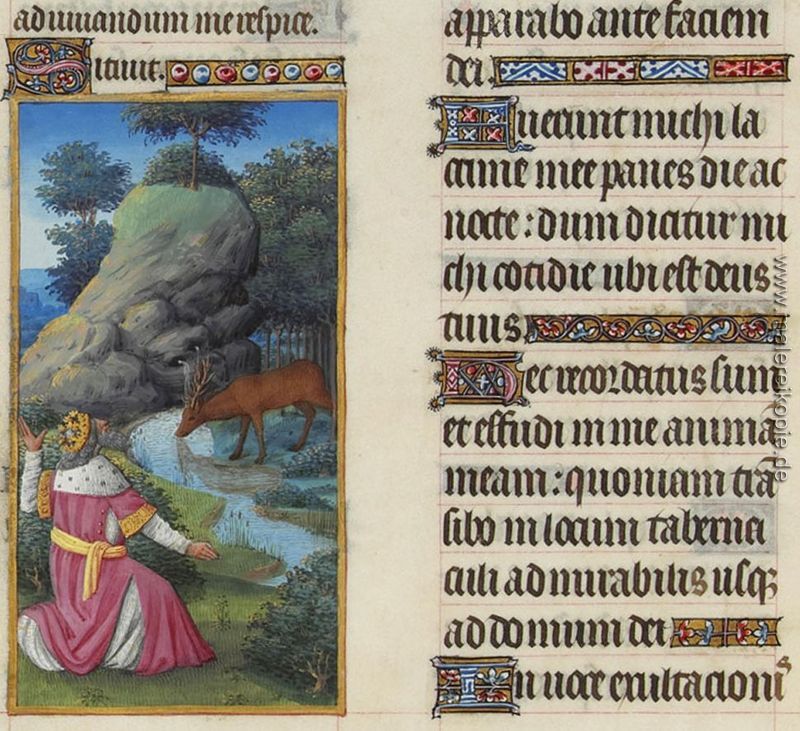 adiuuandum me respice.
Sitiuit.
apparabo ante faciem
dei.
Fuerunt michi la
crime mee panes die ac
nocte: dum dicitur mi
chi cotidie ubi est deus
tuus.
Hec recordatus sum
et effudi in me anima
meam: quoniam trā
sibo in locum taberna
culi admirabilis usqꝫ
ad domum dei
In uoce exultacionis
www.malereikopie.de